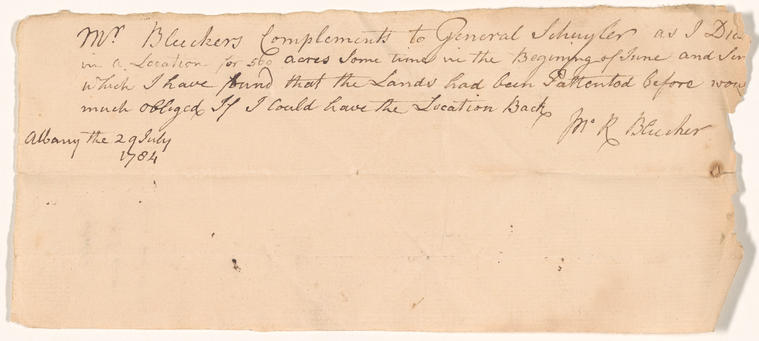 Mr Bleekers Complements to General Schuyler as I Did
in a Location for 560 acres Some time in the Begining of June and Sin
which I have found that the Lands had been Pattented before wou
much obliged If I Could have the Location Back
Jno R Bleeker
Albany the 29 July
1784